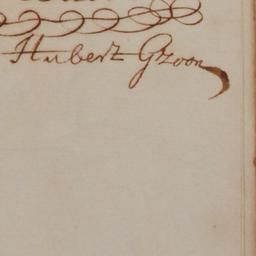 Hubert Gzoon